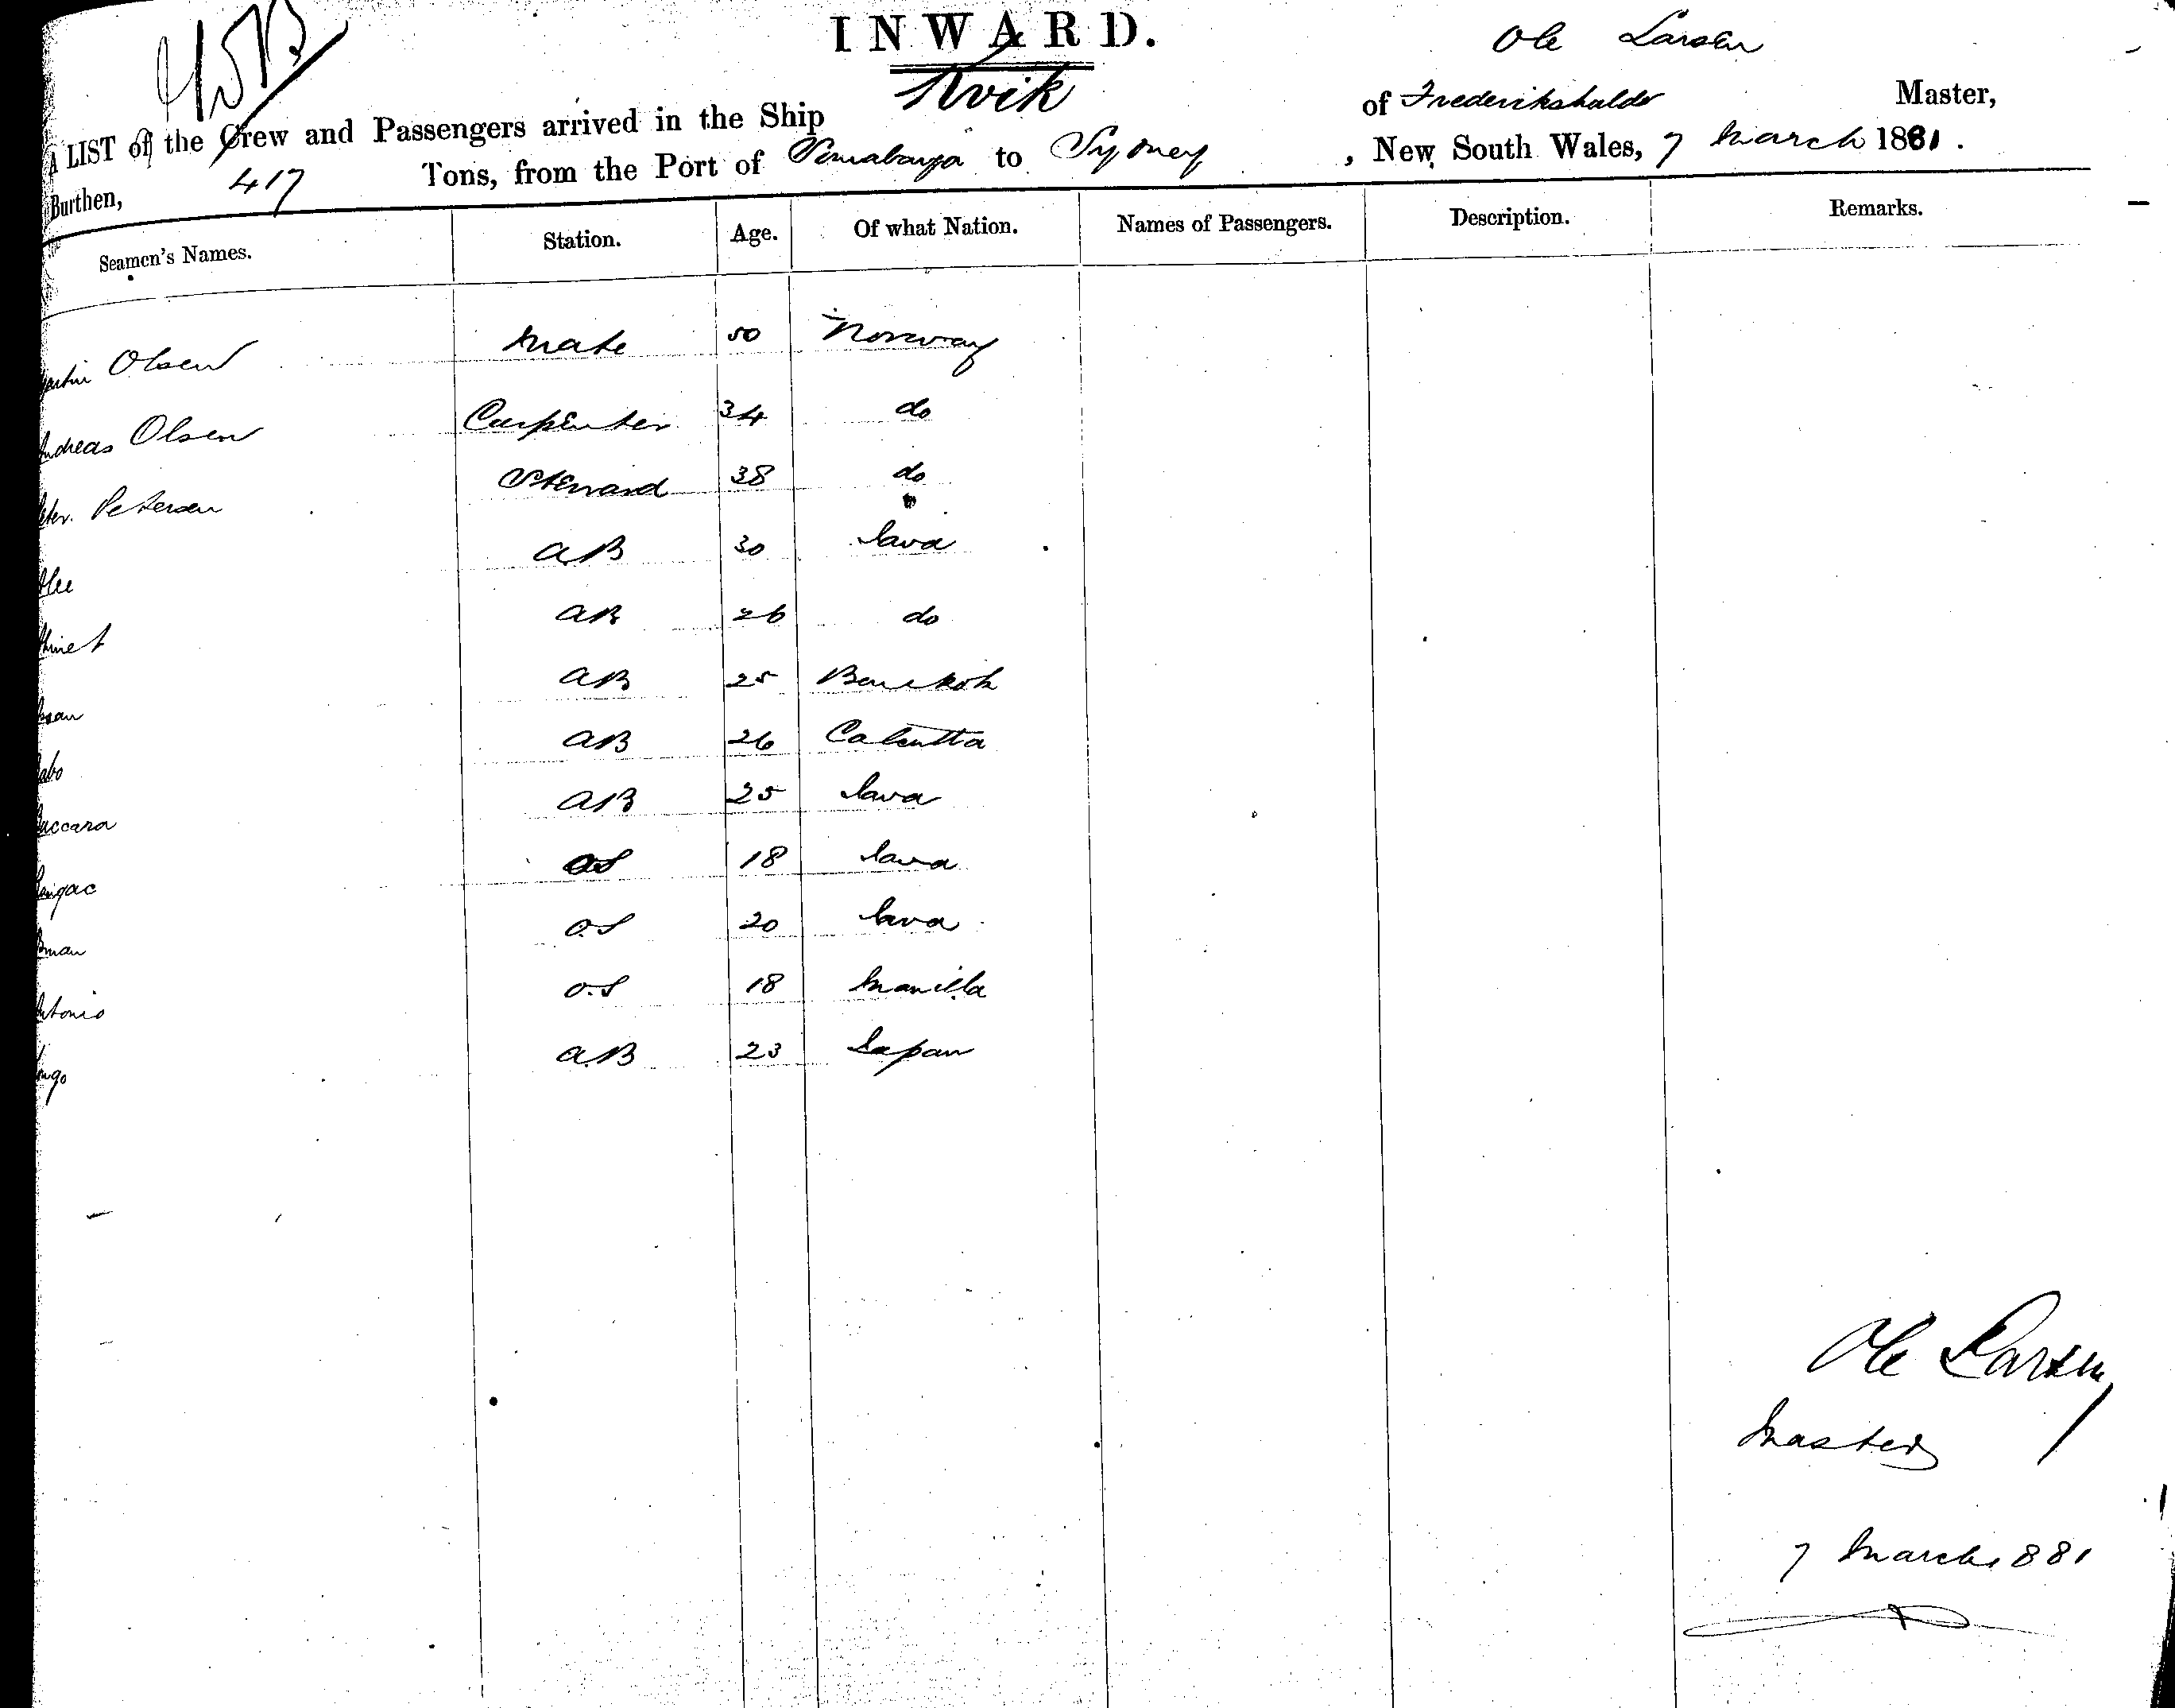 INWARD.
Ole Larsen
A LIST of the Crew and Passengers arrived in the Ship Kvik of Frederikshalds Master,
Burthen, 417 Tons, from the Port of to Sydney, New South Wales, 7 March 1881.
Seamen's Names. Station. Age. Of what Nation. Names of Passengers. Description. Remarks.
Olsen Mate 50 Norway
Andreas Olsen Carpenter 34 do
Peter Petersen Steward 38 do
AB 30 Java
AB 26 do
AB 25 Bankok
AB 26 Calcutta
Baccara AB 25 Java
OS 18 Java
OS 20 Java
Antonio O.S 18 Manilla
A.B 23 Japan
Ole Larsen
Master
7 March 1881